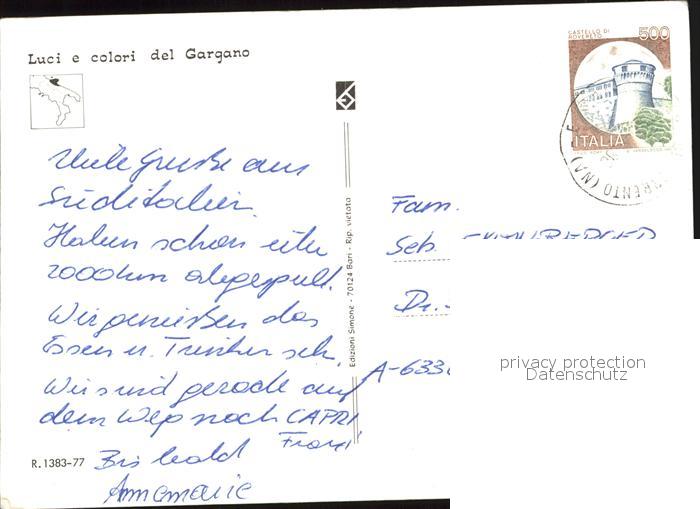 Luci e colori del Gargano
CASTELLO DI
ROVERETO
500
ITALIA
RENTO (NA)
Viele Grüße aus
Süditalien.
Haben schon über
2000 km abgespult.
Wir genießen das
Essen u. Trinken sehr.
Wir sind gerade auf
dem Weg nach CAPRI
Franzi
Bis bald
Annemarie
R. 1383-77
Edizioni Simone - 70124 Bari - Rip. vietata
Fam.
Seb.
Dr.
A-633
privacy protection
Datenschutz